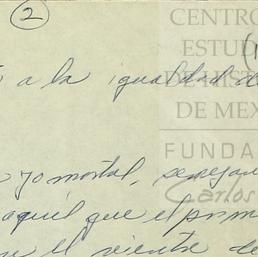 2
CENTRO
ESTUD
DE HIST
DE MEX
FUNDA
Carlos
a la igualdad de
yo mortal, semejan
aquel que el prim
el vientre de